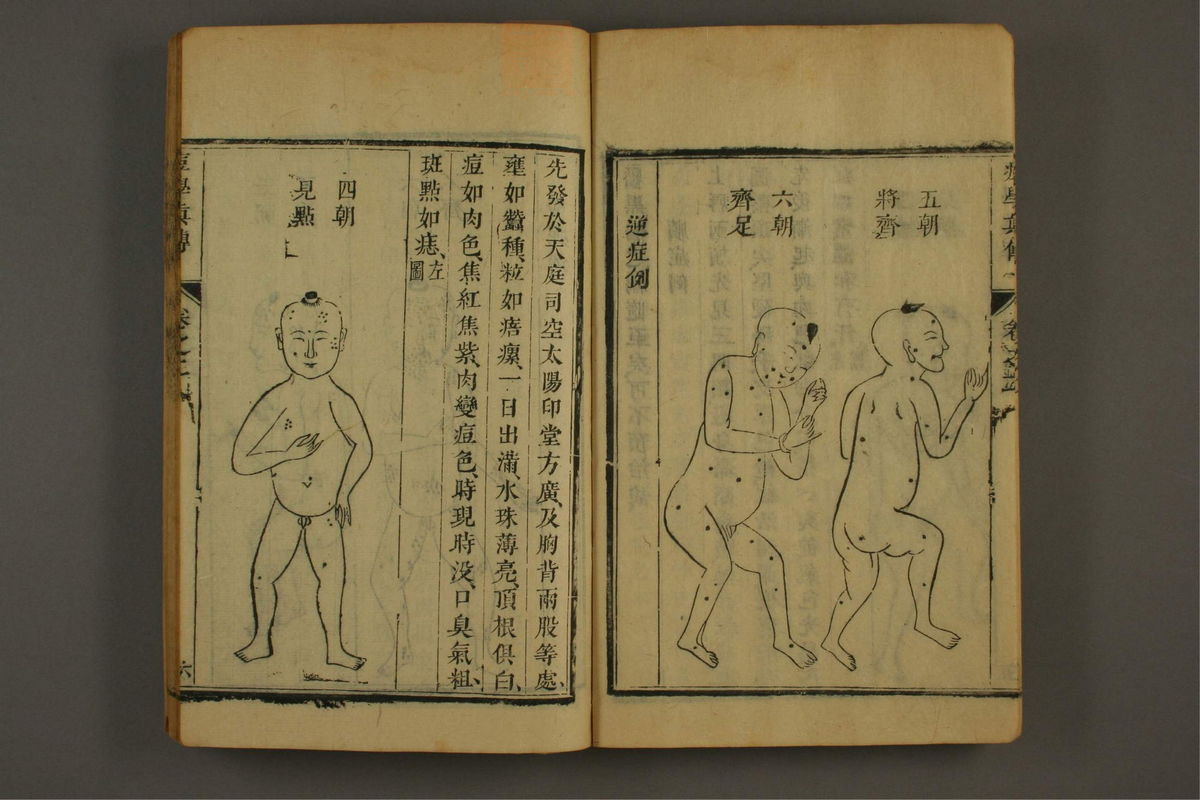 五朝
將齊
六朝
齊足
逆症例
先發於天庭司空太陽印堂方廣、及胸背兩股等處、
壅如蠶種、粒如痦瘰、一日出滿、水珠薄亮、頂根俱白、
痘如肉色、焦紅焦紫、肉變痘色、時現時没、口臭氣粗、
斑點如痣、左圖
四朝
見點
痘學眞傳 卷之二 六